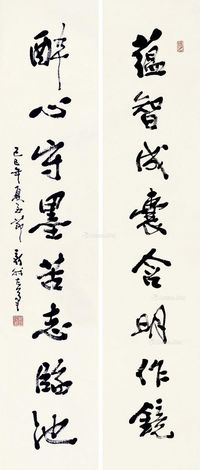 蕴智成囊含明作镜
醉心守墨苦志临池
己巳年夏